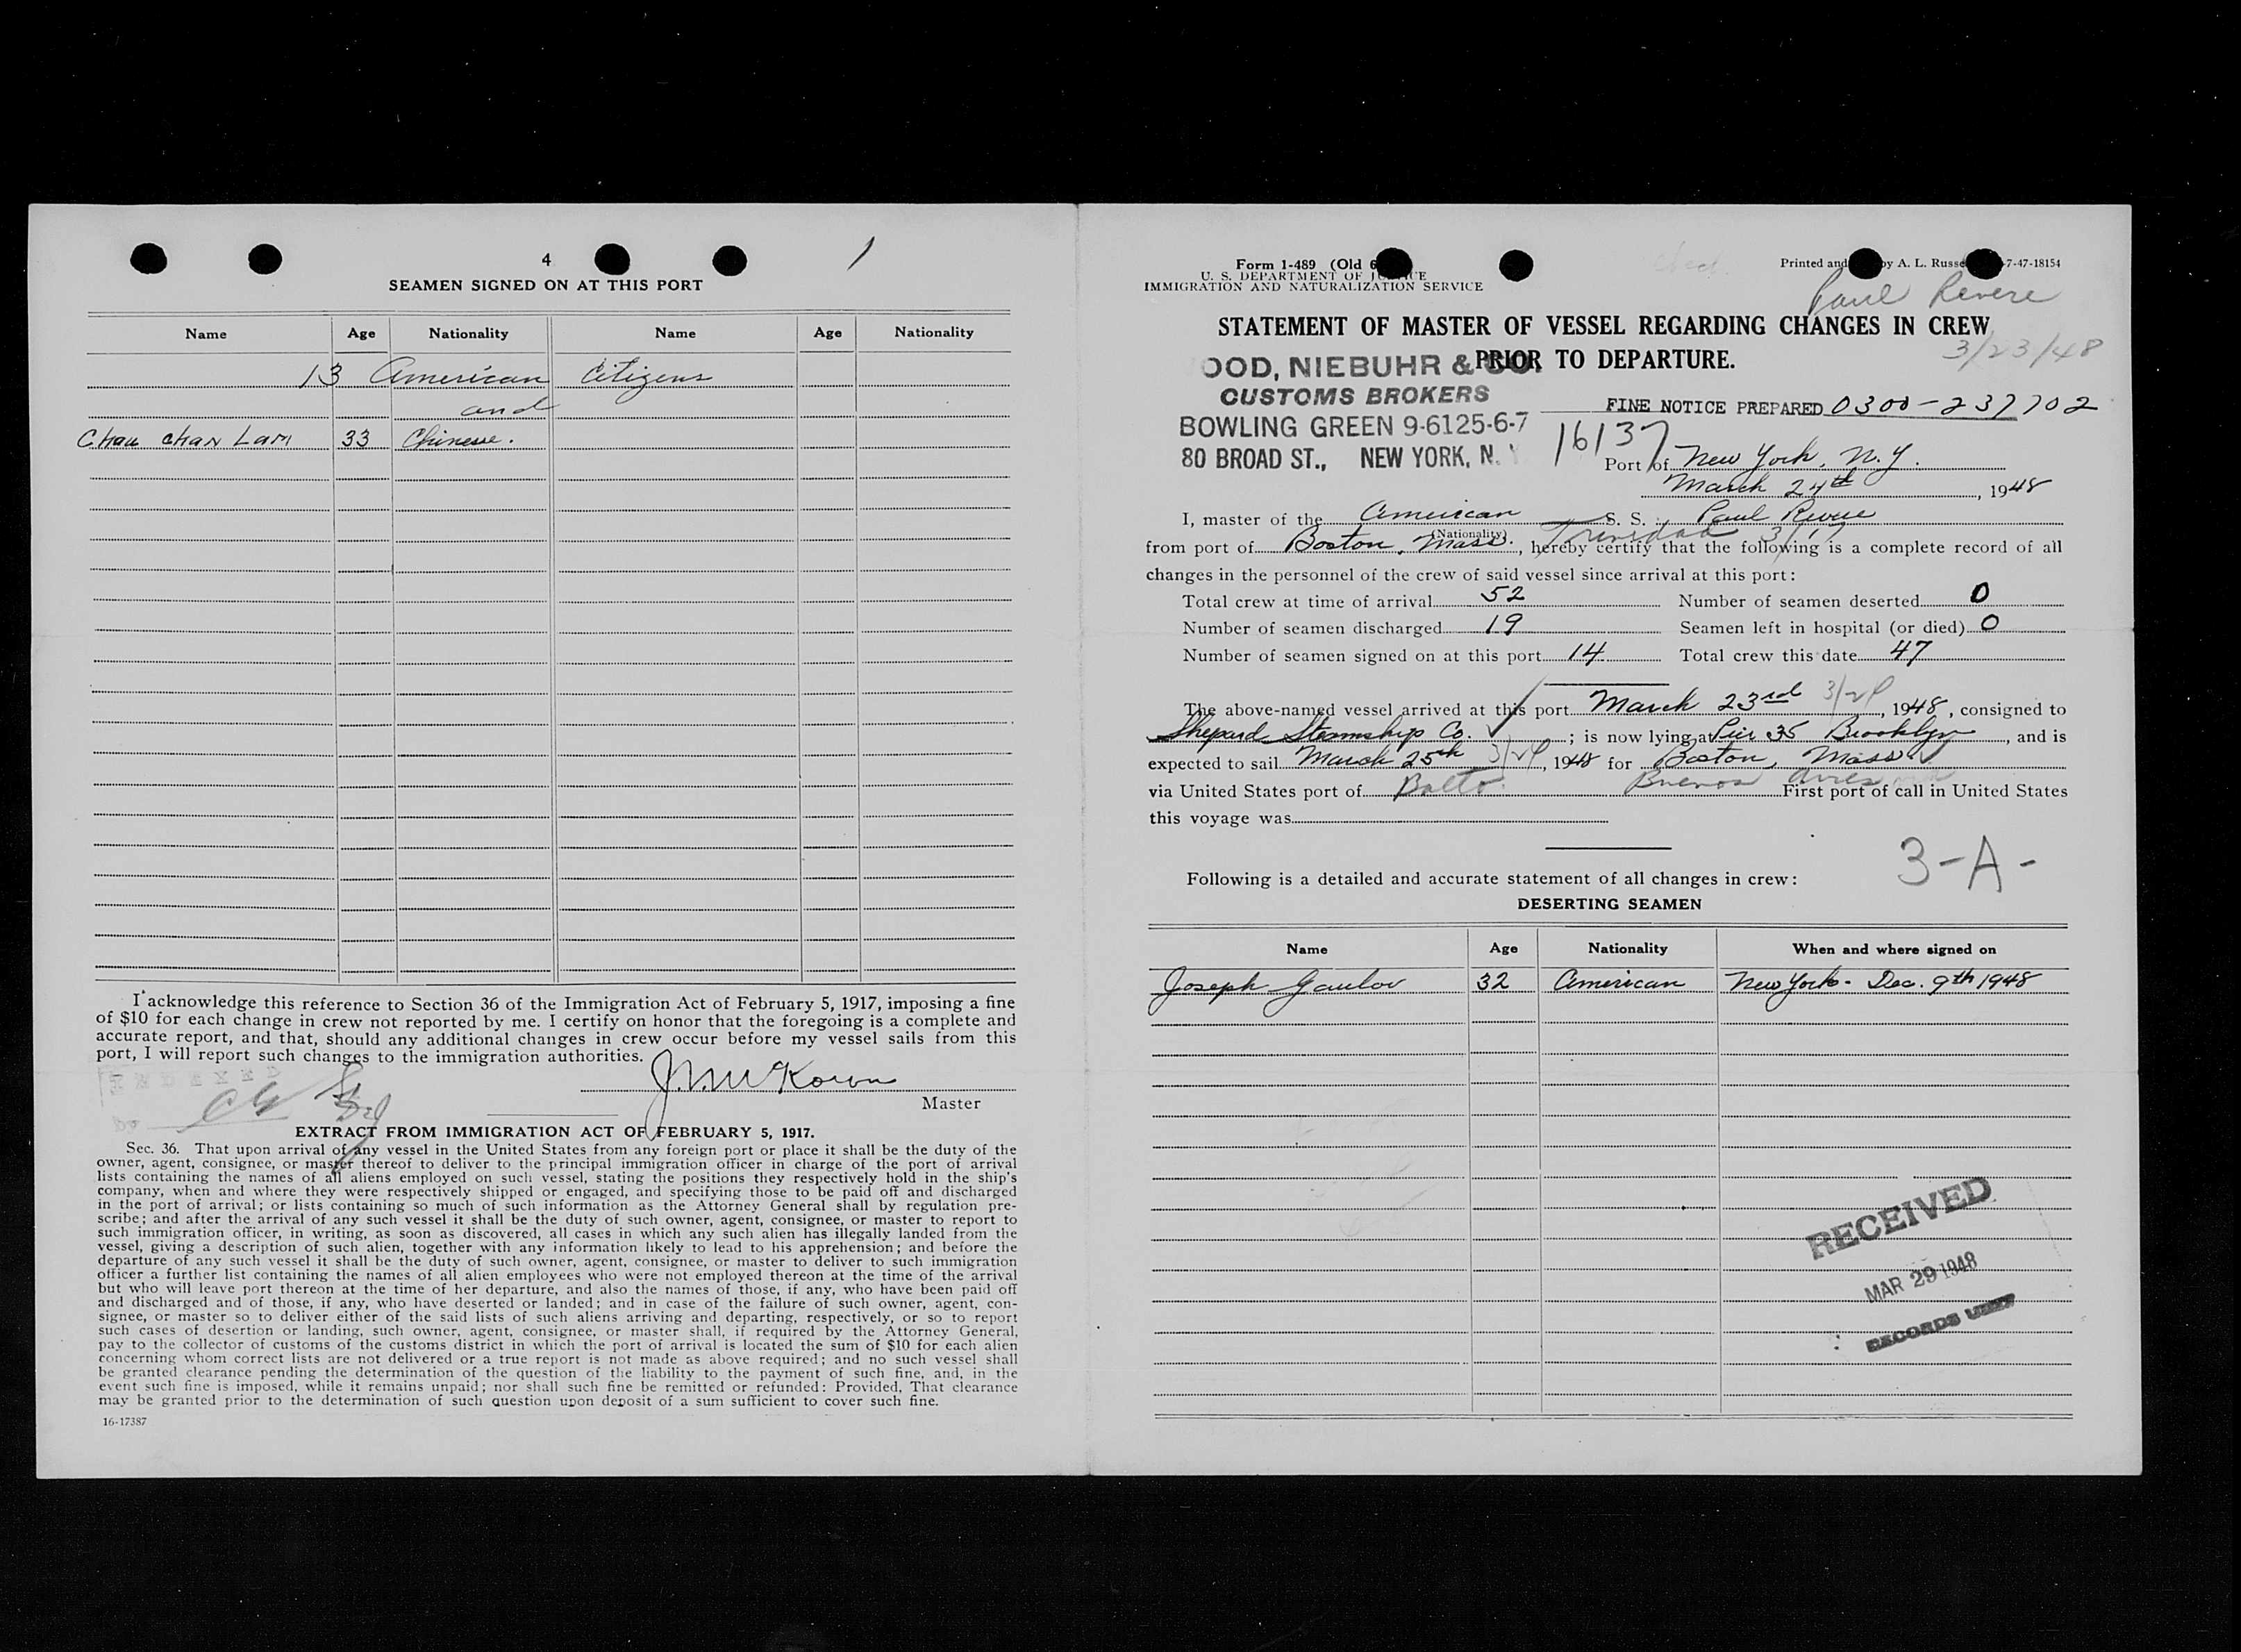 4
SEAMEN SIGNED ON AT THIS PORT
Name Age Nationality Name Age Nationality
13 American Citizens
and
Chau Chan Lam 33 Chinese.
I acknowledge this reference to Section 36 of the Immigration Act of February 5, 1917, imposing a fine
of $10 for each change in crew not reported by me. I certify on honor that the foregoing is a complete and
accurate report, and that, should any additional changes in crew occur before my vessel sails from this
port, I will report such changes to the immigration authorities.
J. McKown
Master
EXTRACT FROM IMMIGRATION ACT OF FEBRUARY 5, 1917.
Sec. 36. That upon arrival of any vessel in the United States from any foreign port or place it shall be the duty of the
owner, agent, consignee, or master thereof to deliver to the principal immigration officer in charge of the port of arrival
lists containing the names of all aliens employed on such vessel, stating the positions they respectively hold in the ship's
company, when and where they were respectively shipped or engaged, and specifying those to be paid off and discharged
in the port of arrival; or lists containing so much of such information as the Attorney General shall by regulation pre-
scribe; and after the arrival of any such vessel it shall be the duty of such owner, agent, consignee, or master to report to
such immigration officer, in writing, as soon as discovered, all cases in which any such alien has illegally landed from the
vessel, giving a description of such alien, together with any information likely to lead to his apprehension; and before the
departure of any such vessel it shall be the duty of such owner, agent, consignee, or master to deliver to such immigration
officer a further list containing the names of all alien employees who were not employed thereon at the time of the arrival
but who will leave port thereon at the time of her departure, and also the names of those, if any, who have been paid off
and discharged and of those, if any, who have deserted or landed; and in case of the failure of such owner, agent, con-
signee, or master so to deliver either of the said lists of such aliens arriving and departing, respectively, or so to report
such cases of desertion or landing, such owner, agent, consignee, or master shall, if required by the Attorney General,
pay to the collector of customs of the customs district in which the port of arrival is located the sum of $10 for each alien
concerning whom correct lists are not delivered or a true report is not made as above required; and no such vessel shall
be granted clearance pending the determination of the question of the liability to the payment of such fine, and, in the
event such fine is imposed, while it remains unpaid; nor shall such fine be remitted or refunded: Provided, That clearance
may be granted prior to the determination of such question upon deposit of a sum sufficient to cover such fine.
16-17387
Form 1-489 (Old 6
U. S. DEPARTMENT OF JUSTICE
IMMIGRATION AND NATURALIZATION SERVICE
Printed and by A. L. Russe 7-47-18154
Paul Revere
STATEMENT OF MASTER OF VESSEL REGARDING CHANGES IN CREW
PRIOR TO DEPARTURE.
3/23/48
OOD, NIEBUHR & CO.
CUSTOMS BROKERS
BOWLING GREEN 9-6125-6-7
80 BROAD ST., NEW YORK, N. Y
FINE NOTICE PREPARED 0300-237702
16137
Port of New York, N.Y.
March 24th, 1948
I, master of the American S. S. Paul Revere
(Nationality)
from port of Boston, Mass. Trinidad 3/17, hereby certify that the following is a complete record of all
changes in the personnel of the crew of said vessel since arrival at this port:
Total crew at time of arrival 52 Number of seamen deserted 0
Number of seamen discharged 19 Seamen left in hospital (or died) 0
Number of seamen signed on at this port 14 Total crew this date 47
The above-named vessel arrived at this port March 23rd, 1948, consigned to
Shepard Steamship Co.; is now lying at Pier 35 Brooklyn, and is
expected to sail March 25th, 1948 for Boston, Mass
via United States port of Balto. Buenos Aires First port of call in United States
this voyage was
3-A-
Following is a detailed and accurate statement of all changes in crew:
DESERTING SEAMEN
Name Age Nationality When and where signed on
Joseph Gaulov 32 American New York - Dec. 9th 1948
RECEIVED
MAR 29 1948
RECORDS UNIT